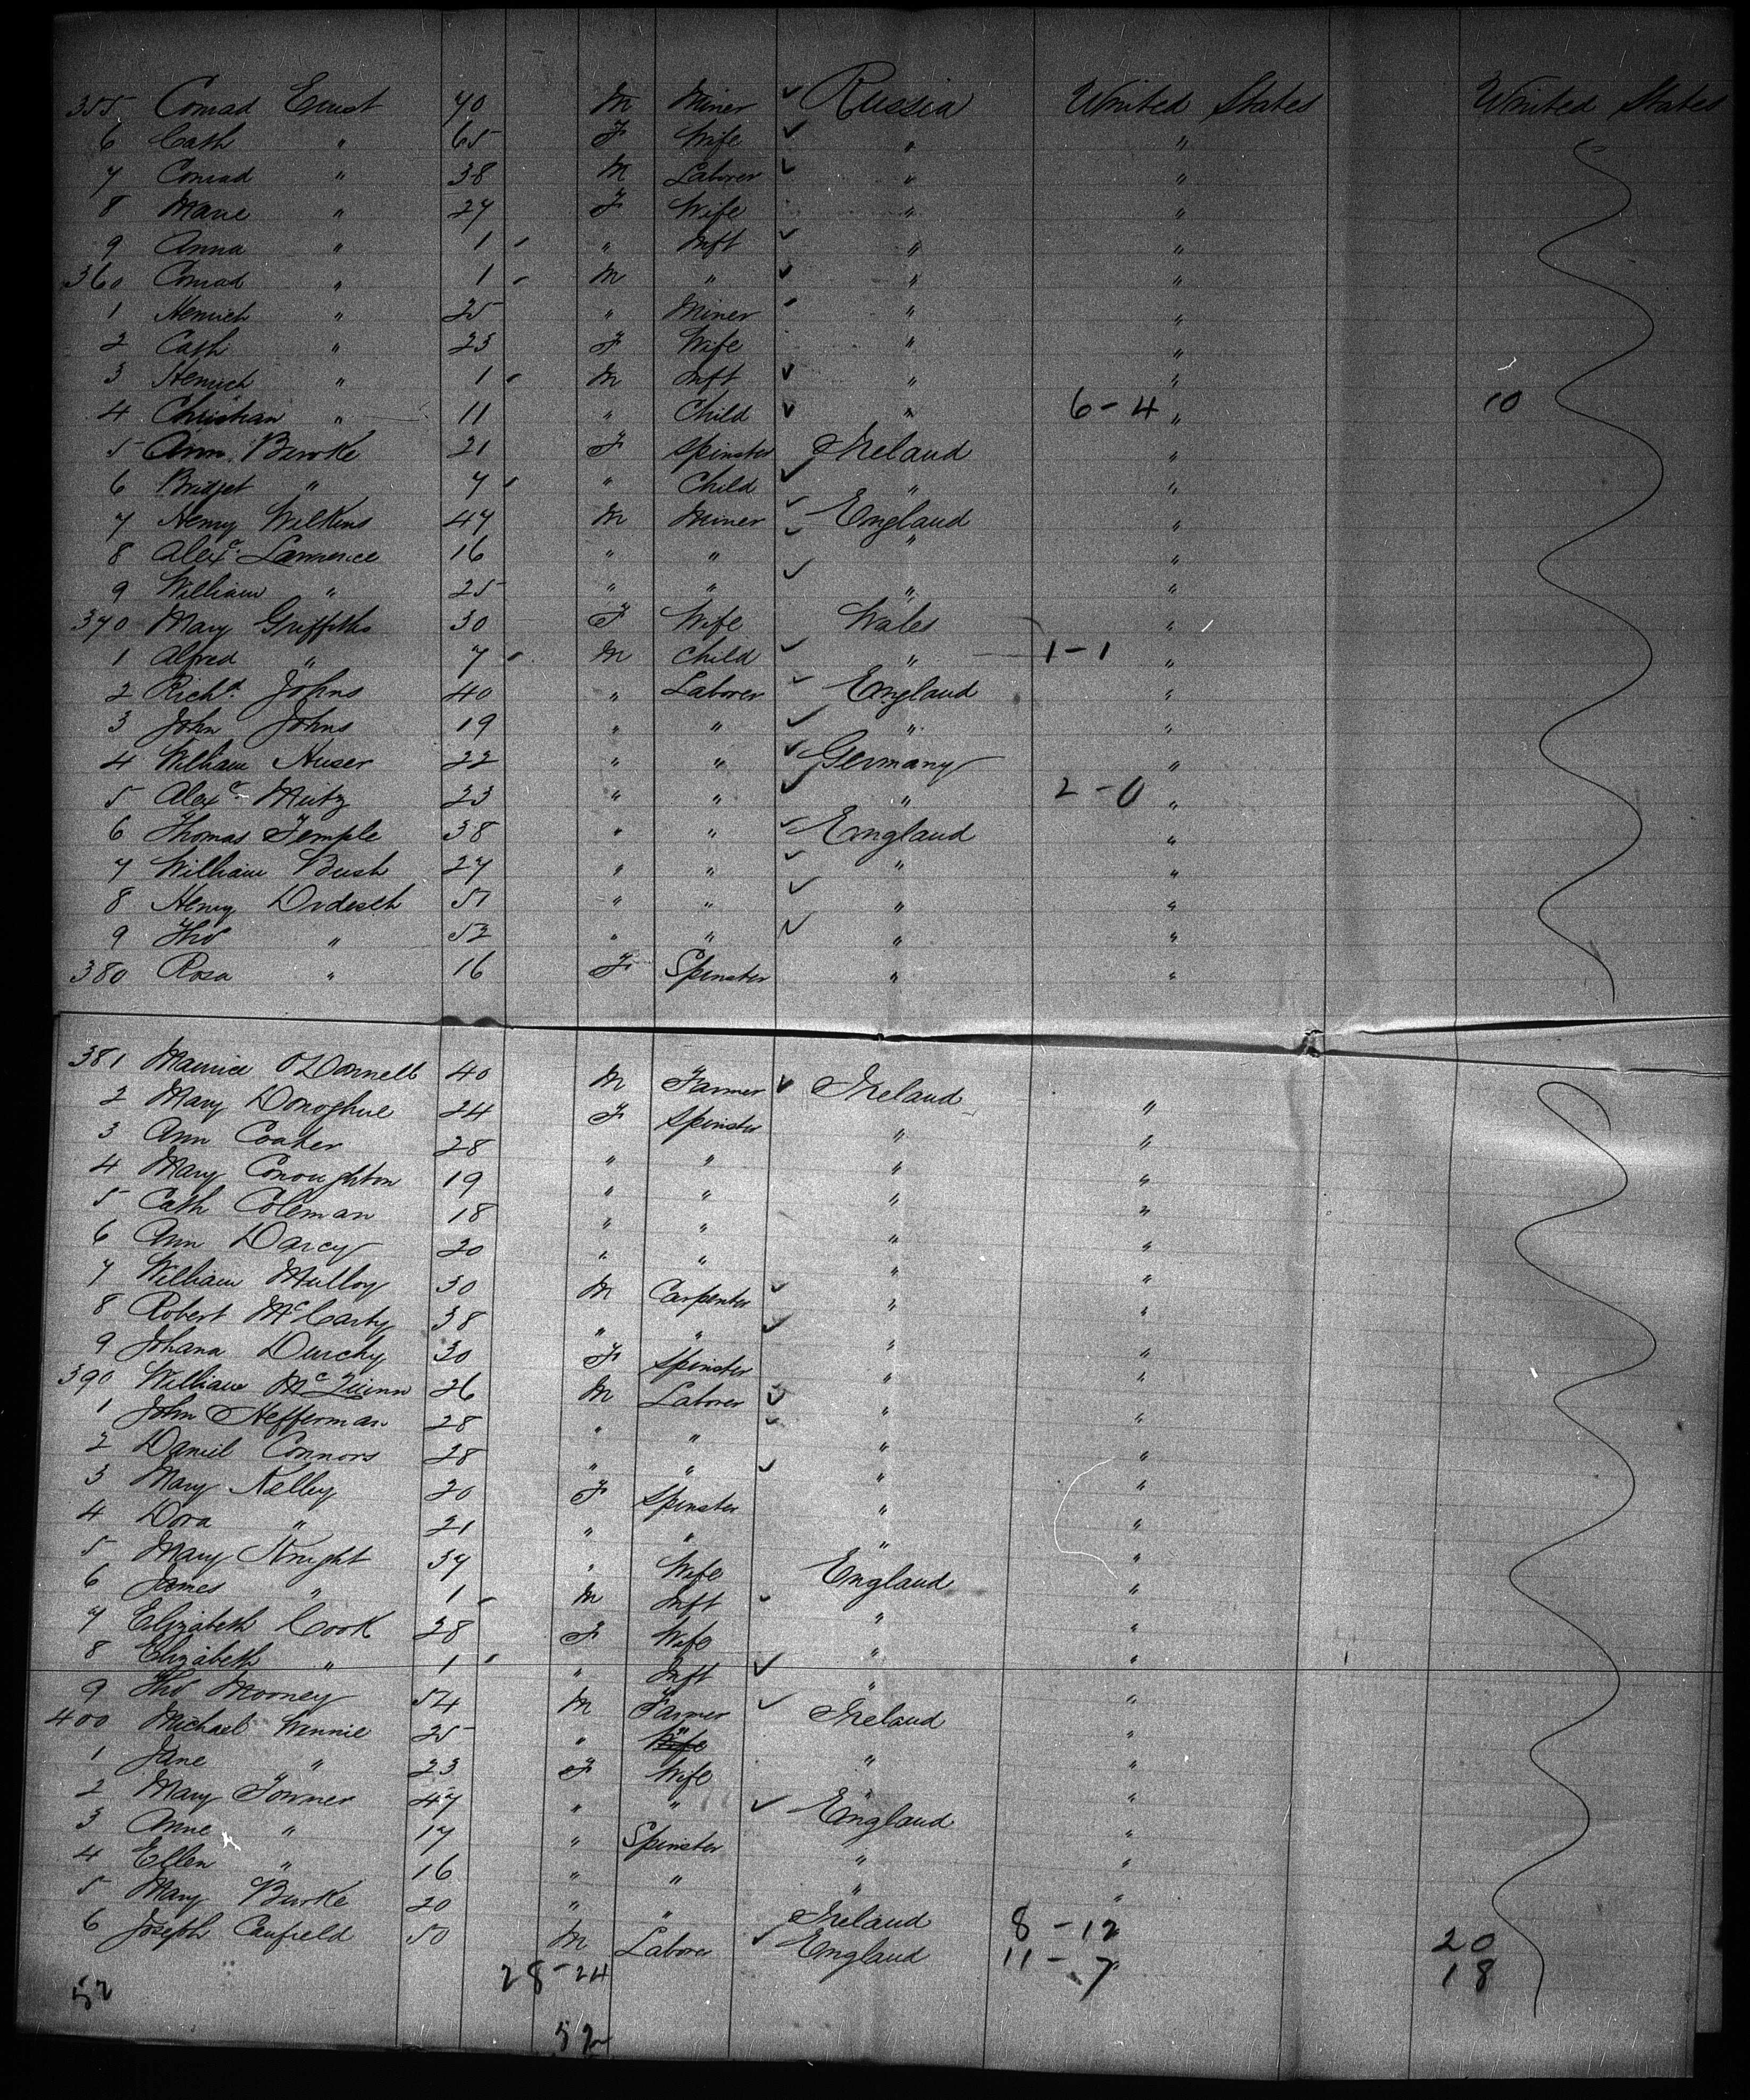 355 Conrad Ernst 70 M Miner ✓ Russia United States United States
6 Cath " 65 F Wife ✓ " "
7 Conrad " 38 M Laborer ✓ " "
8 Marie " 27 F Wife " "
9 Anna " 1 " Inft ✓ " "
360 Conrad " 1 M " ✓ " "
1 Henrich " 25 " Miner " "
2 Cath " 23 F Wife " "
3 Henrich " 1 M Inft ✓ " "
4 Christian " 11 " Child ✓ " 6-4 " 10
5 Ann Burke 21 F Spinster Ireland "
6 Bridget " 7 " Child ✓ " "
7 Henry Wilkins 47 M Miner ✓ England "
8 Alexr. Lawrence 16 " " ✓ " "
9 William " 25 " " ✓ " "
370 Mary Griffiths 30 F Wife Wales "
1 Alfred " 7 M Child ✓ " 1-1 "
2 Richd. Johns 40 " Laborer ✓ England "
3 John Johns 19 " " ✓ " "
4 William Huser 22 " " ✓ Germany "
5 Alexr. Mutz 23 " " ✓ " 2-0 "
6 Thomas Temple 38 " " ✓ England "
7 William Bush 27 " " ✓ " "
8 Henry 51 " " ✓ " "
9 Tho " 52 " " ✓ " "
380 Rosa " 16 F Spinster " "
381 Maurice O'Donnell 40 M Farmer ✓ Ireland "
2 Mary Donoghue 24 F Spinster " "
3 Ann Coaker 28 " " " "
4 Mary Conoughton 19 " " " "
5 Cath Coleman 18 " " " "
6 Ann Darcy 20 " " " "
7 William Mulloy 30 M Carpenter ✓ " "
8 Robert McCarty 38 " " ✓ " "
9 Johana Durchy 30 F Spinster " "
390 William McQuinn 26 M Laborer ✓ " "
1 John Hefferman 28 " " ✓ " "
2 Daniel Connors 28 " " ✓ " "
3 Mary Kelley 20 F Spinster " "
4 Dora " 21 " " " "
5 Mary Knight 37 " Wife England "
6 James " 1 M Inft ✓ " "
7 Elizabeth Cook 28 F Wife " "
8 Elizabeth " 1 " Inft ✓ " "
9 Tho Mooney 54 M Farmer ✓ Ireland "
400 Michael Winnie 25 " " " "
1 Jane " 23 F Wife " "
2 Mary Towner 47 " " ✓ England "
3 Anne " 17 " Spinster " "
4 Ellen " 16 " " " "
5 Mary Burke 20 " " Ireland 8-12 20
6 Joseph Caufield 50 M Labore ✓ England 11-7 " 18
52 28-24
52